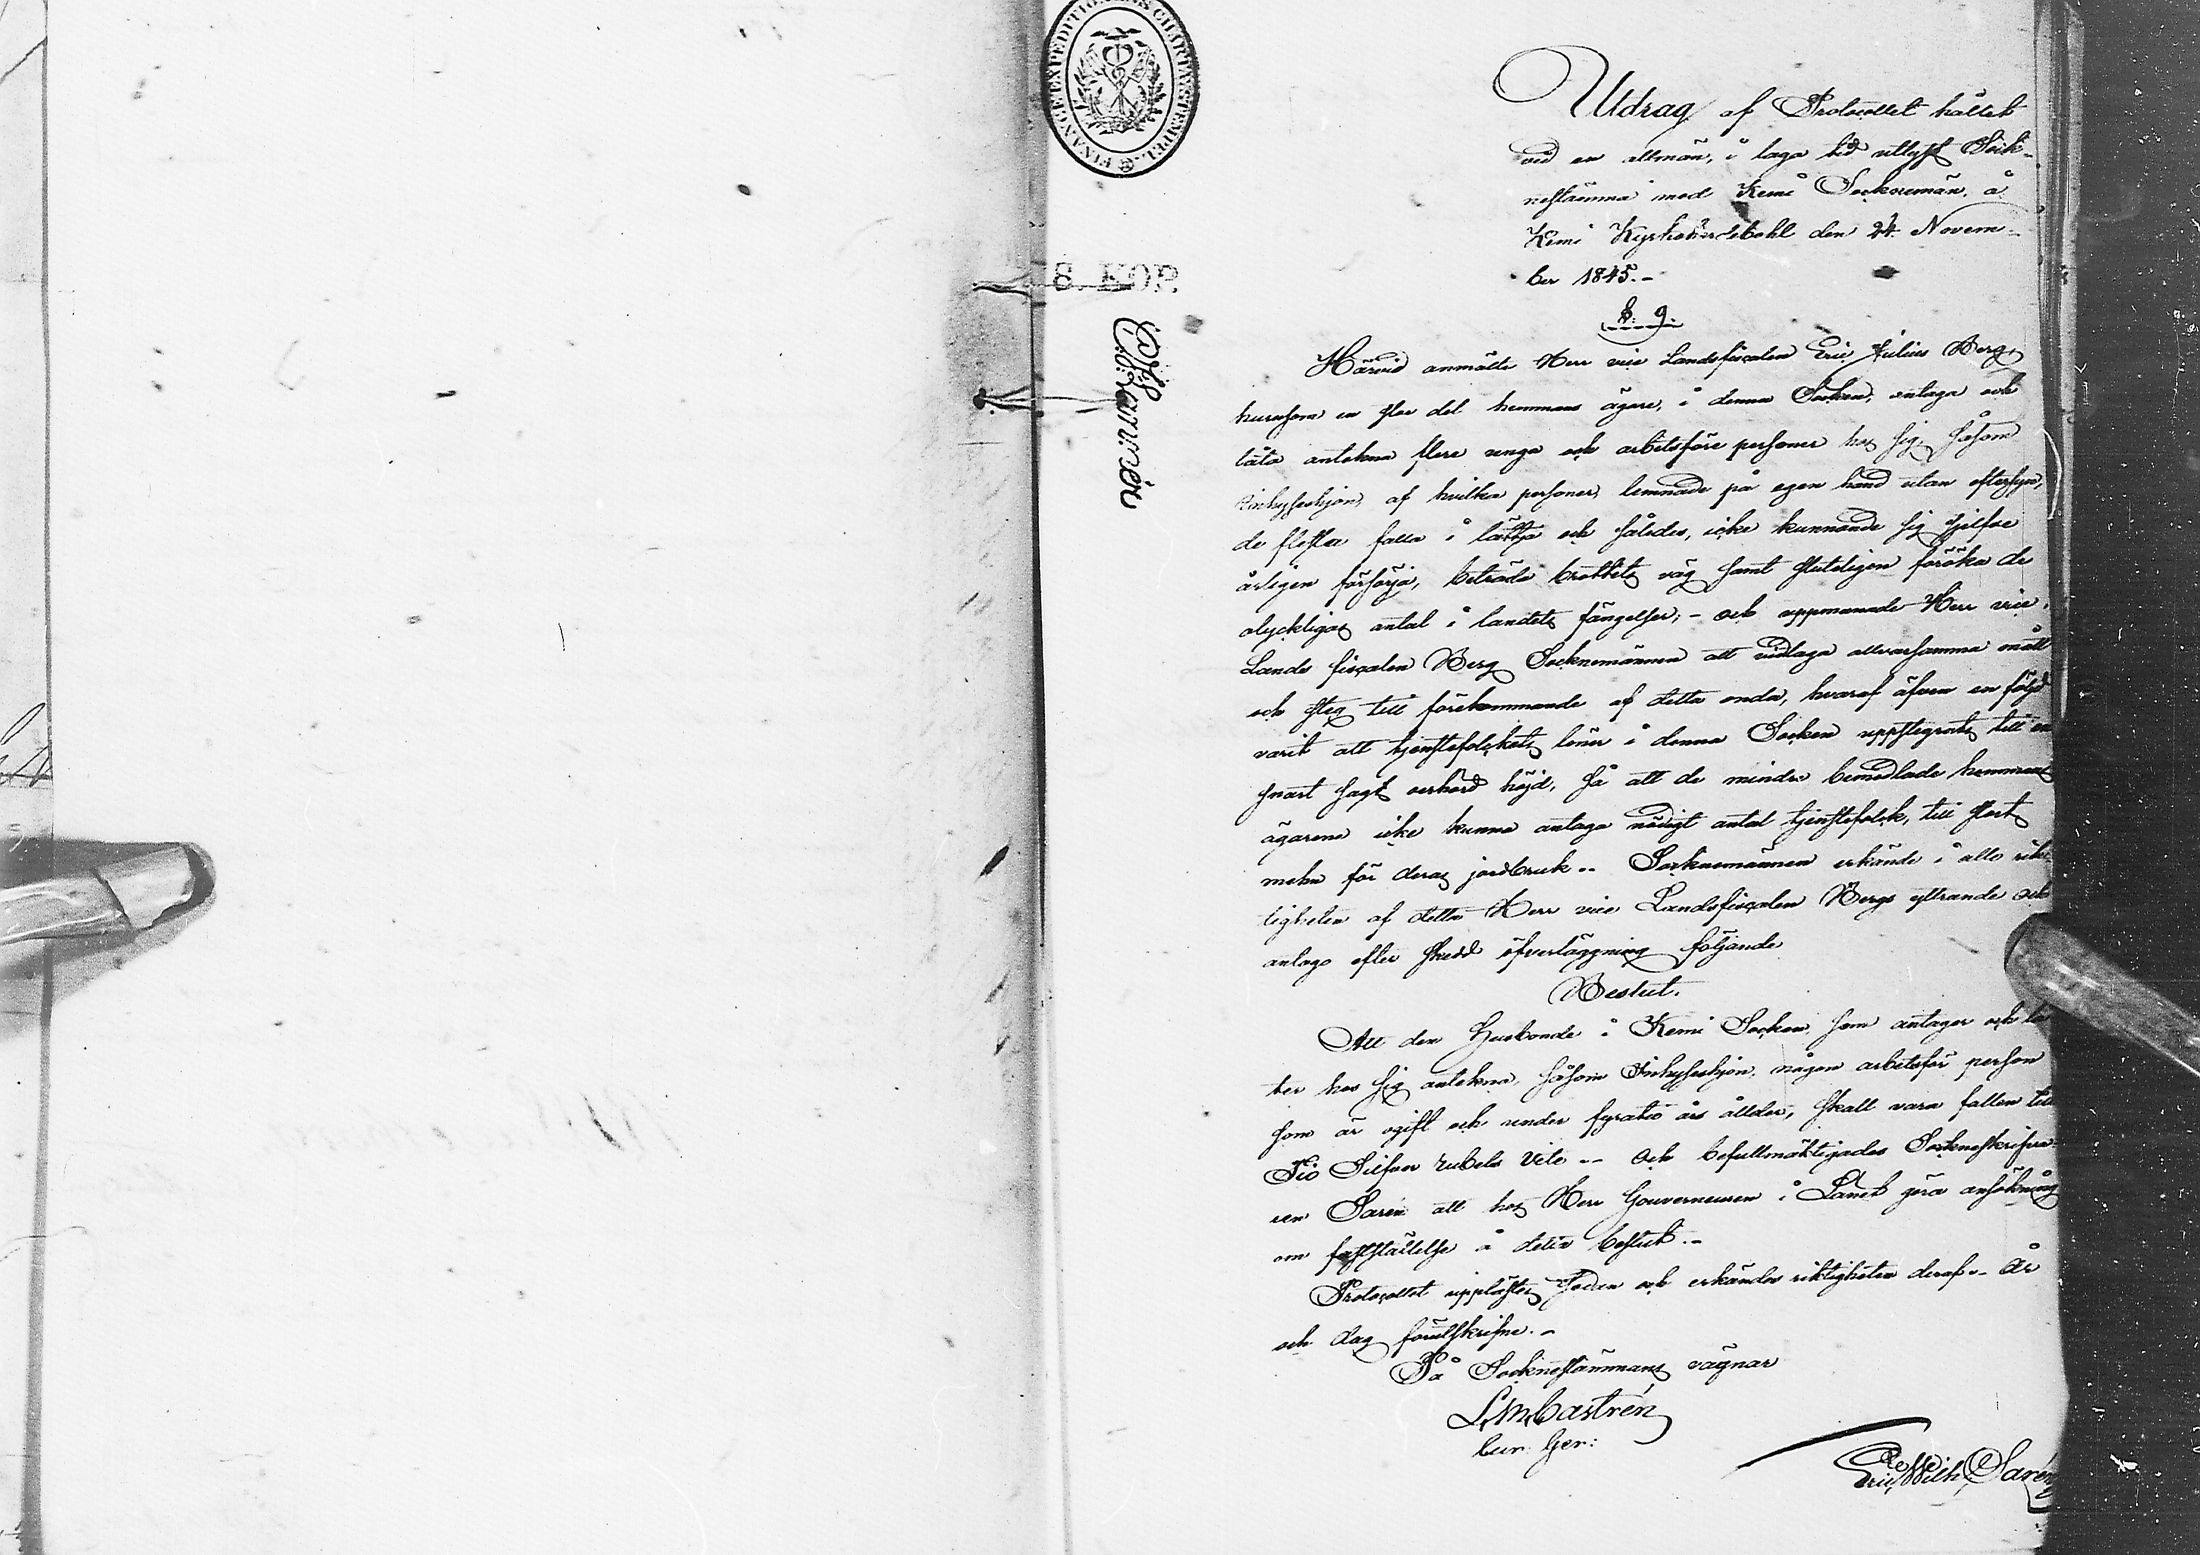 FINANCE EXPEDITIONENS CHARTÆ STEMPEL.
8. KOP.
Utdrag af Protocollet hållet
vid en allmän, i laga tid utlyst Sock-
nestämma med Kemi Socknemän, å
Kemi Kyrkoherdebohl den 24 Novem-
ber 1845.-
§. 9.
Härvid anmälte Herr vice Landsfiscalen Eric Julius Berg,
hurusom en stor del hemmans ägare, i denna Socken, antaga och
låta antekna flere unga och arbetsföre personer hos sig, såsom
Inhyseshjon, af hvilka personer, lemnade på egen hand utan eftersyn,
de flesta falla i lättja och således, icke kunnande sig sjelfve
ärligen försörja, beträda brottets väg samt sluteligen föröka de
olyckligas antal i landets fängelser; - och uppmanade Herr vice
Lands fiscalen Berg Socknemännen att vidtaga allvarsamma mått
och steg till förekommande af detta onda, hvaraf äfven en följd
varit att tjenstefolckets löner i denna Socken uppstegrats till en
snart sagt oerhörd höjd, så att de mindre bemedlade hemmans
ägarene icke kunna antaga nödigt antal tjenstefolck, till stort
mehn för deras jordbruk.- Socknemännen erkände i allo rik-
tigheten af detta Herr vice Landsfiscalen Bergs yttrande och
antogo efter skedd öfverläggning följande
Beslut.
Att den Husbonde i Kemi Socken, som antager och lå-
ter hos sig antekna, såsom Inhyseshjon, någon arbetsför person
som är ogift och under fyratio års ålder, skall vara fallen till
Tio Silfver rubels Vite.- Och befullmäktigades Sockneskrifva-
ren Sarén att hos Herr Gouverneuren i Länet göra ansökning
om fastställelse å detta beslut.-
Protocollet upplästes sedan och erkändes riktigheten deraf.- År
och dag förutskrifne.-
På Socknestämmans vägnar
L M Castrén
Cur: Ger:
Eric Wilh. Sarén